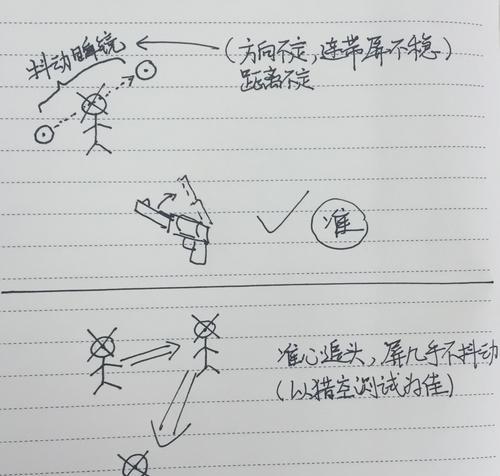 抖动瞬镜
(方向不定,连带屏不稳)
距离不定
准
准心追头,屏几乎不抖动
(以猎空测试为佳)